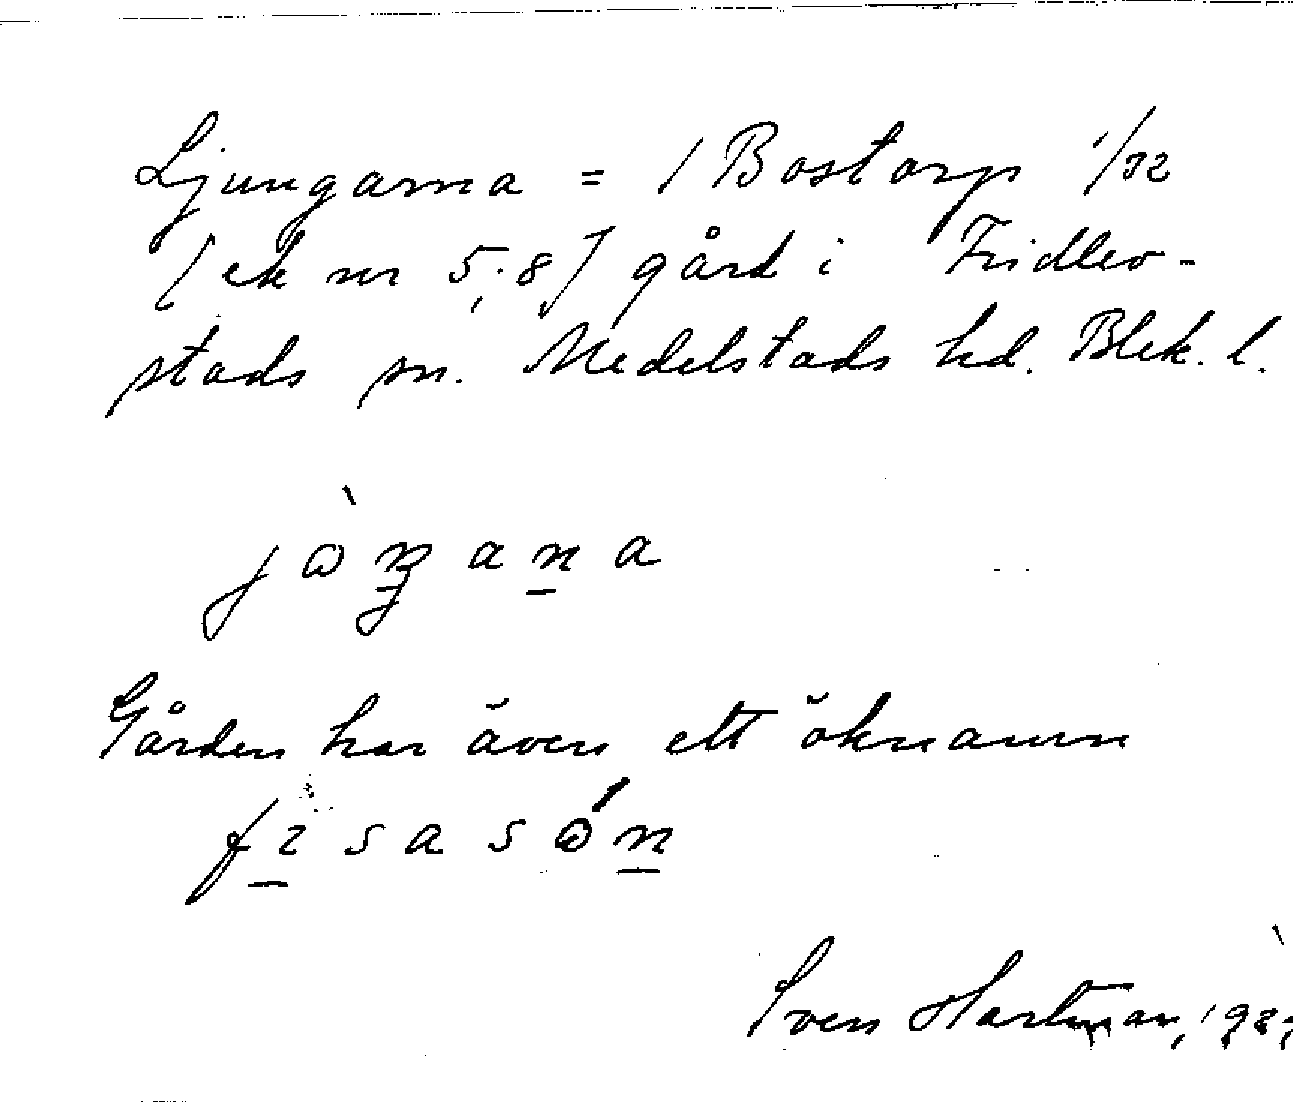 Ljungarna = 1 Bostorp 1/32
[ek nr 5:8] gård i Fridlev-
stads sn. Medelstads hd. Blek. l.
Gården har även ett öknamn
Sven Hartman,